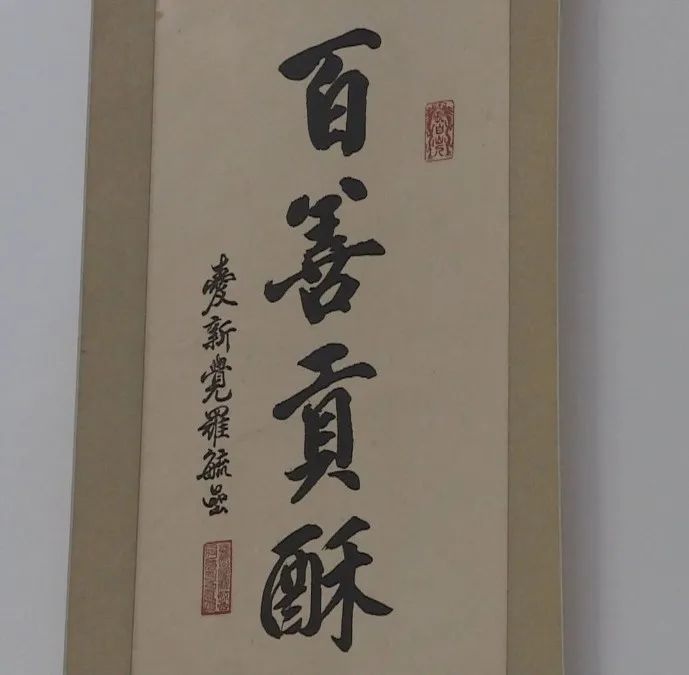 百善貢酥
愛新覺羅毓嵒